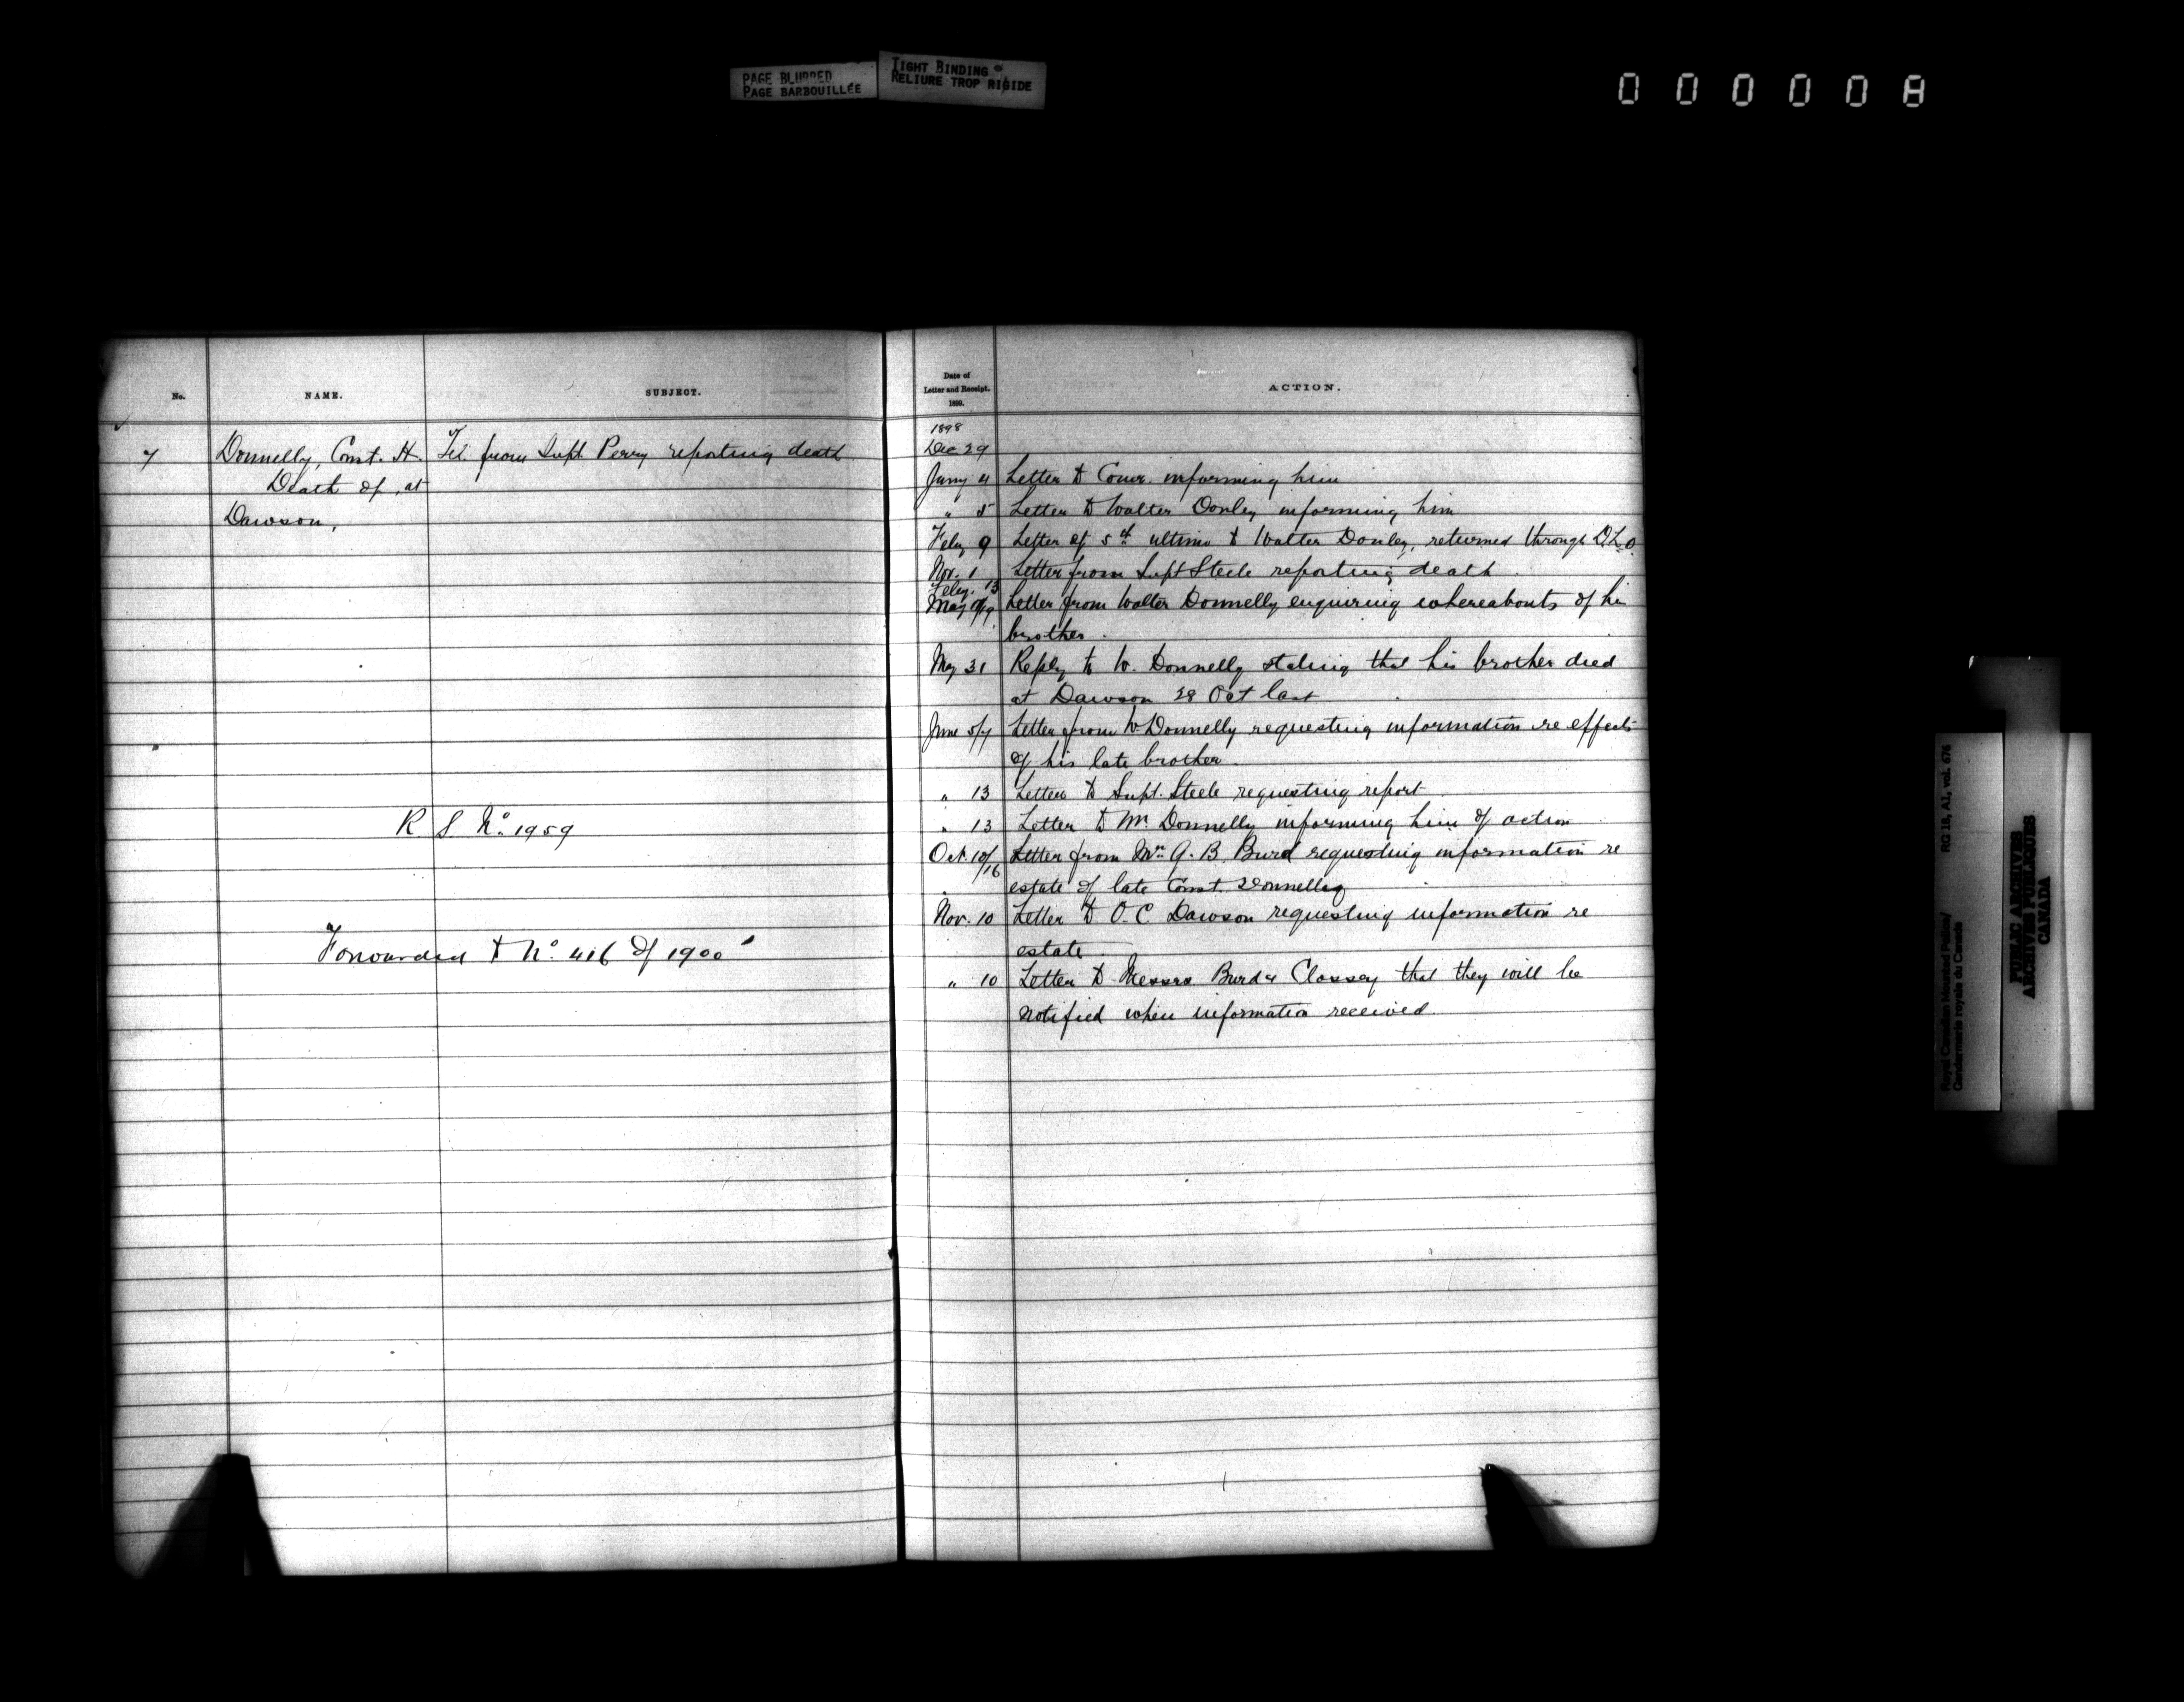 PAGE BLURRED
PAGE BARBOUILLÉE
TIGHT BINDING
RELIURE TROP RIGIDE
000008
No.
NAME.
SUBJECT.
7
Donnelly, Const. H.
Death of, at
Dawson,
Tel. from Supt. Perry reporting death
R S No. 1959
Forwarded to No. 416 of 1900
Date of
Letter and Receipt.
1899.
ACTION.
1898
Dec 29
Jany 4 Letter to Comr. informing him
" 5 Letter to Walter Donley informing him
Feby 9 Letter of 5th ultimo to Walter Donley, returned through D.L.O.
Nov. 1
Feby. 13 Letter from Supt Steele reporting death
May 9/19 Letter from Walter Donnelly enquiring whereabouts of his
brother.
May 31 Reply to W. Donnelly stating that his brother died
at Dawson 28 Oct last
June 5/7 Letter from W. Donnelly requesting information re effects
of his late brother.
" 13 Letter to Supt. Steele requesting report
" 13 Letter to Mr. Donnelly informing him of action
Oct. 10/16 Letter from Mr. G. B. Burd requesting information re
estate of late Const. Donnelly
Nov. 10 Letter to O.C. Dawson requesting information re
estate
" 10 Letter to Messrs Burd & Clossey that they will be
notified when information received.
Royal Canadian Mounted Police/
Gendarmerie royale du Canada
RG 18, A1, vol. 674
PUBLIC ARCHIVES
ARCHIVES PUBLIQUES
CANADA